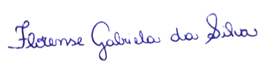 Florense Gabriela da Silva